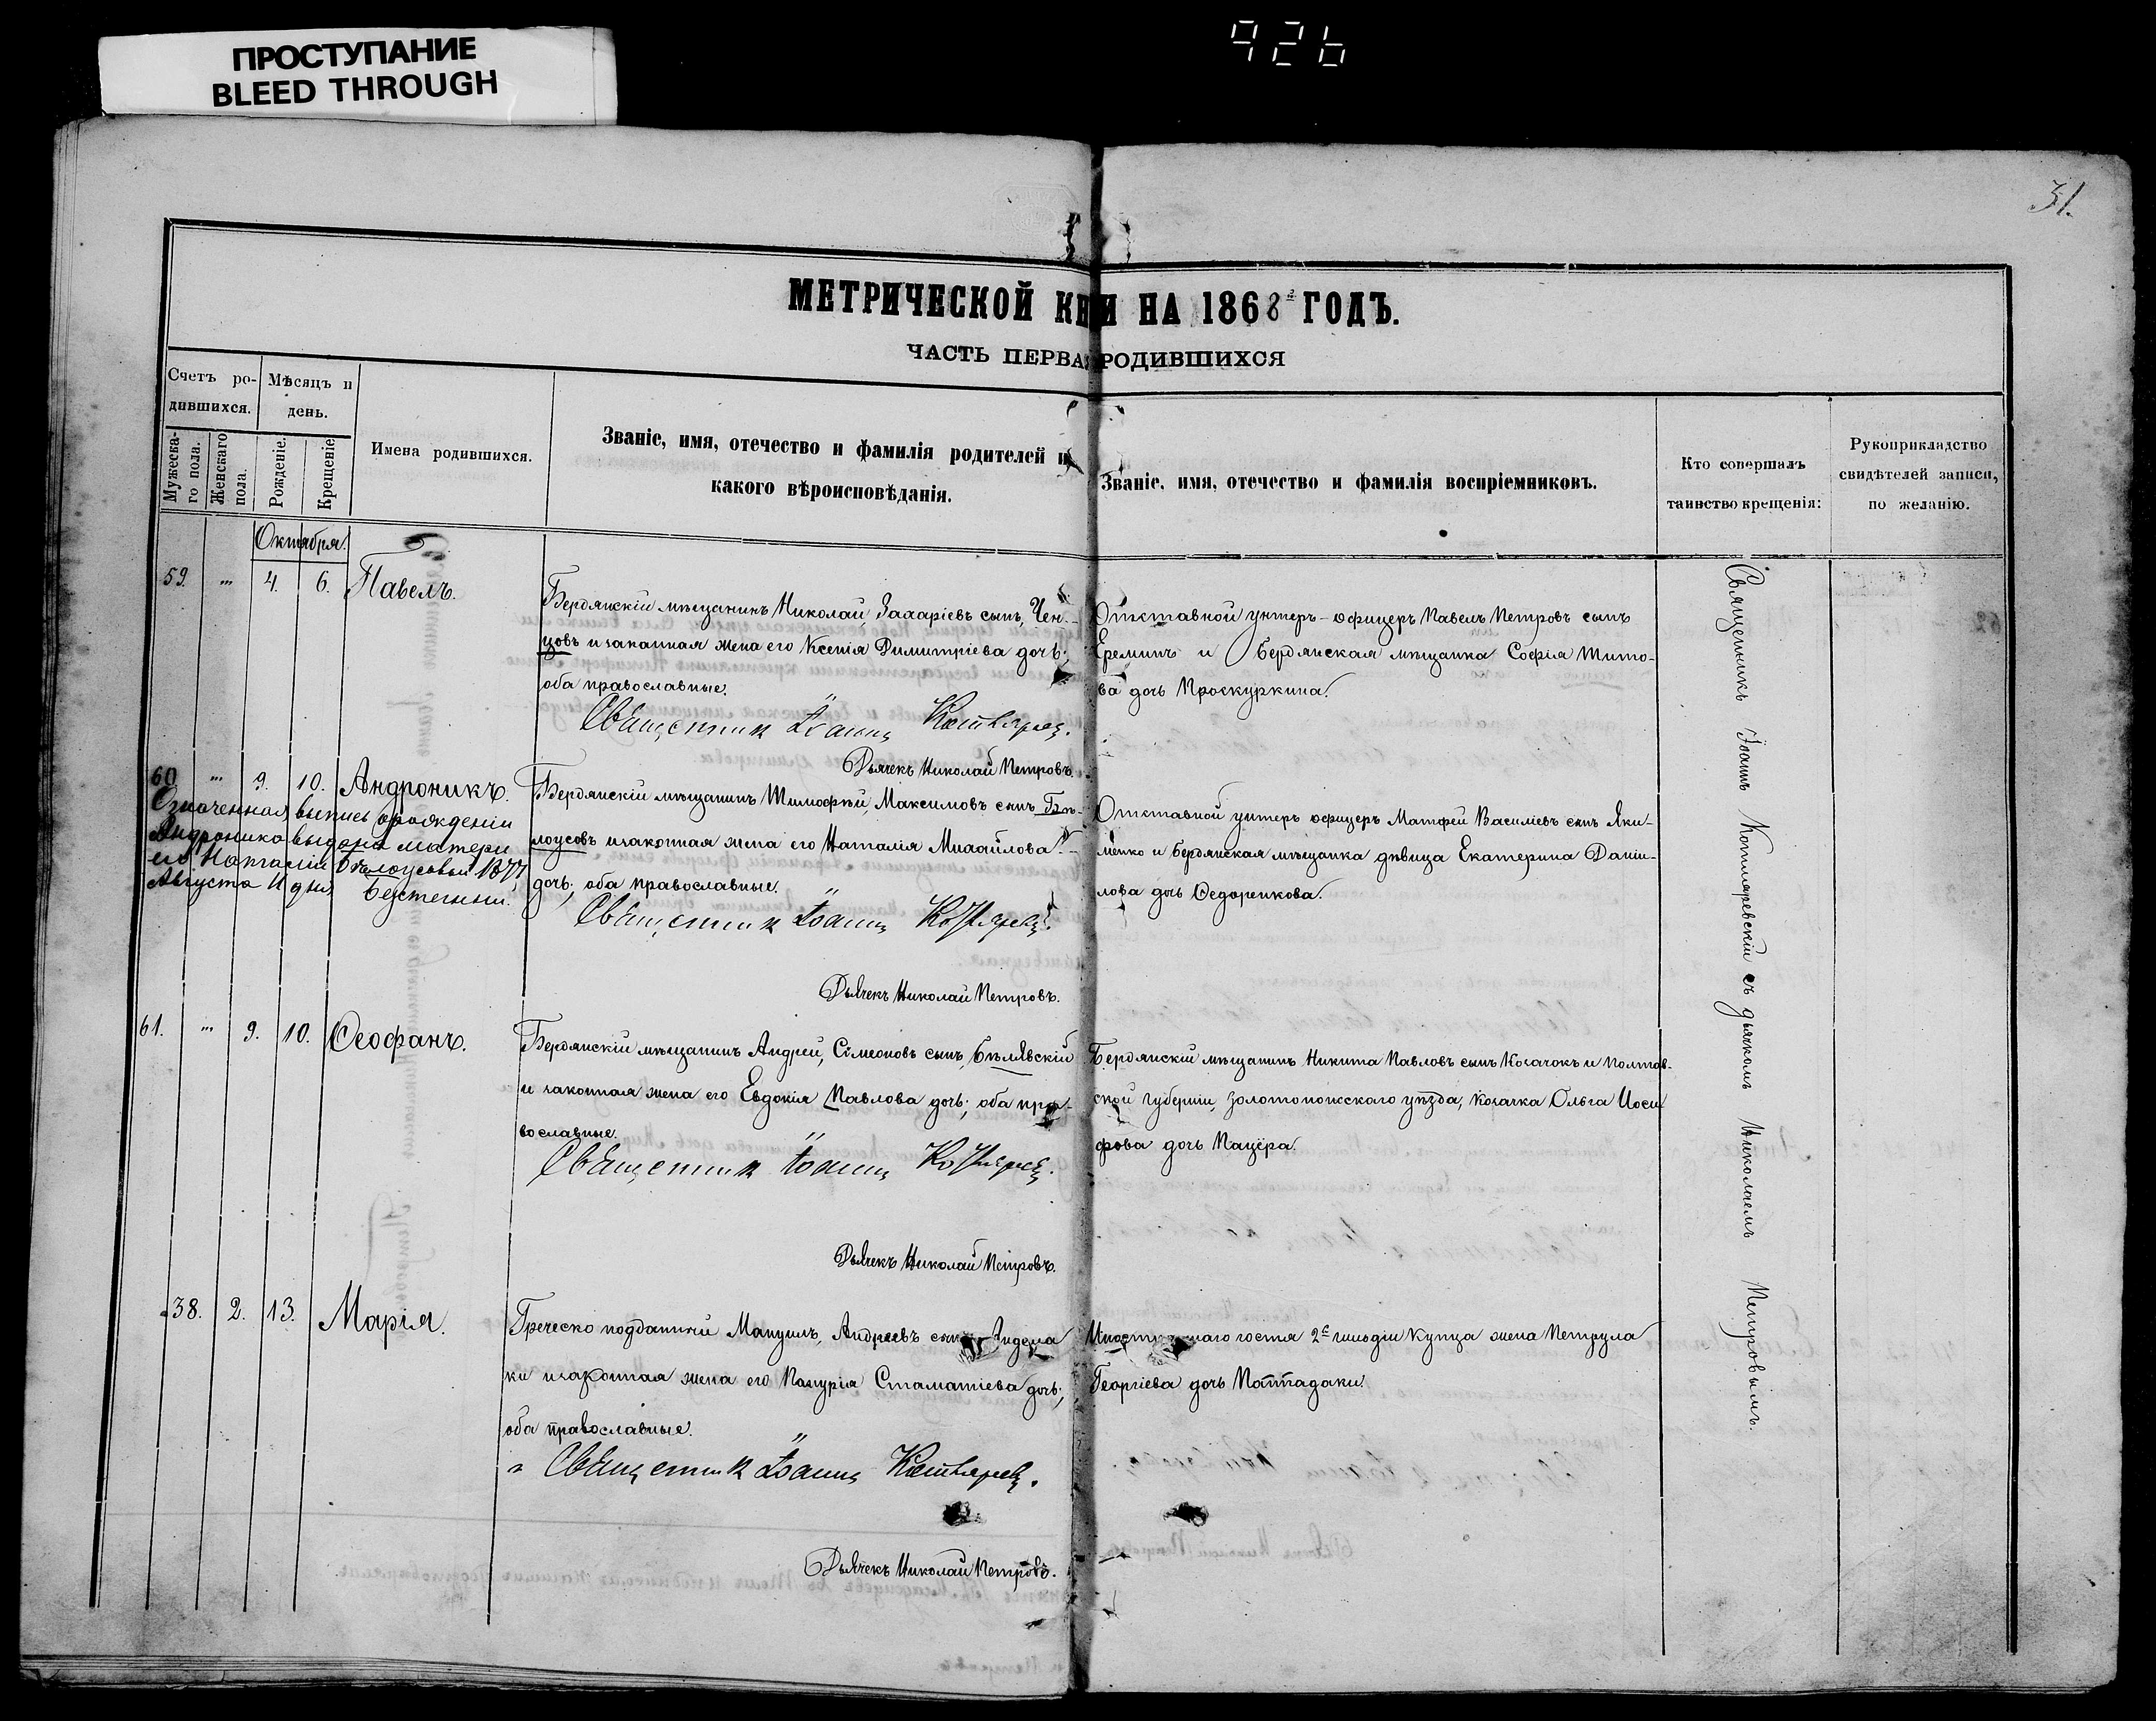 ПРОСТУПАНИЕ
BLEED THROUGH
926
31.
МЕТРИЧЕСКОЙ КН И НА 1868 ГОДЪ.
ЧАСТЬ ПЕРВА РОДИВШИХСЯ
Счетъ ро-
дившихся.
Мѣсяцъ и
день.
Мужеска-
го пола.
Женскаго
пола.
Рожденіе.
Крещеніе
Имена родившихся.
Званіе, имя, отечество и фамилія родителей и
какого вѣроисповѣданія.
Званіе, имя, отечество и фамилія воспріемниковъ.
Кто совершалъ
таинство крещенія:
Рукоприкладство
свидѣтелей записи,
по желанію.
Октября.
59. " 4. 6. Павелъ.
Бердянскій мѣщанинъ Николай, Захаріевъ сынъ, Чен-
цовъ и законная жена его Ксенія Димитріева дочь;
оба православные.
Священник Іоанн Котляре
Дьячекъ Николай Петровъ.
Отставной унтеръ-офицеръ Павелъ Петровъ сынъ
Ереминъ и Бердянская мѣщанка Софія Тито-
ва дочь Проскуркина.
60 " 9. 10. Андроникъ.
Означенная выпись о рожденіи
Андроника выдана матери
его Наталіи Бѣлоусовый 1877
Августа 11 дня
Бердянскій мѣщанинъ Тимофѣй, Максимовъ сынъ Бѣ-
лоусовъ и законная жена его Наталія Михайлова
дочь; оба православные.
Священник Іоанн Котляре
Дьячекъ Николай Петровъ.
Отставной унтеръ офицеръ Матфей Василіевъ сынъ Яки-
менко и Бердянская мѣщанка дѣвица Екатерина Даніи-
лова дочь Ѳедоренкова.
61. " 9. 10. Ѳеофанъ.
Бердянскій мѣщанинъ Андрей, Сѵмеоновъ сынъ, Бѣлявскій
и законная жена его Евдокія Павлова дочь; оба пра-
вославные.
Священник Іоанн Котляре
Дьячекъ Николай Петровъ.
Бердянскій мѣщанинъ Никита Павловъ сынъ Косачокъ и Полтав-
ской губерніи, Золотоношскаго уѣзда, козачка Ольга Иоси
фова дочь Пацёра.
" 38. 2. 13. Марія.
Греческо подданный Мануилъ, Андреевъ сынъ
ки и законная жена его Стаматіева дочь;
оба православные.
Священник Іоанн Котляре
Дьячекъ Николай Петровъ.
Иностраннаго гостя 2й гильдіи купца жена Петрула
Георгіева дочь Паппадаки.
Священникъ Іоаннъ Котляревскій съ дьячкомъ Николаемъ Петровымъ.